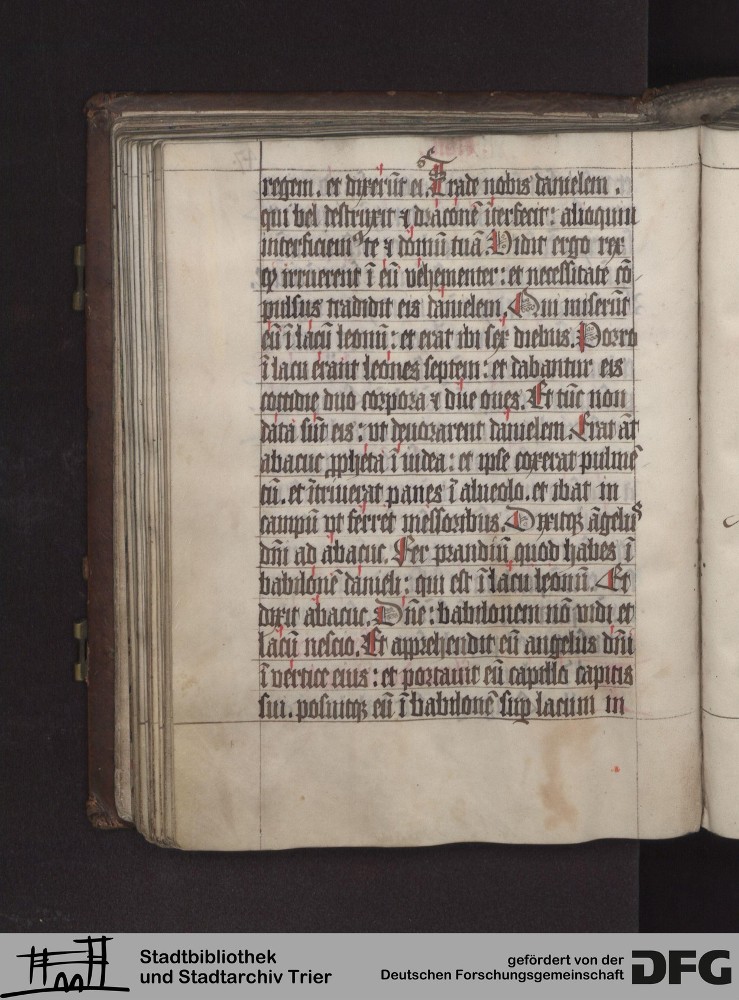 regem. et dixerūt ei. Trade nobis danielem.
qui bel destruxit ⁊ draconē īterfecit: alioquin
interficiemꝰ te ⁊ domū tuā. Vidit ergo rex
ꝙ irruerent ī eū vehementer: et necessitate cō
pulsus tradidit eis danielem. Qui miserūt
eū ī lacū leonū: et erat ibi sex diebus. Porro
ī lacu erant leones septem: et dabantur eis
cottidie duo corpora ⁊ due oues. Et tūc non
data sūt eis: vt deuorarent danielem. Erat āt
abacuc ꝓpheta ī iudea: et ipse coxerat pulmē
tū. et ītriuerat panes ī alueolo. et ibat in
campū vt ferret messoribus. Dixitqꝫ āgelus
dn̄i ad abacuc. Fer prandiū quod habes ī
babilonē danieli: qui est ī lacu leonū. Et
dixit abacuc. Dn̄e: babilonem nō vidi et
lacū nescio. Et apprehendit eū angelus dn̄i
ī vertice eius: et portauit eū capillo capitis
sui. posuitqꝫ eū ī babilonē suꝑ lacum in
Stadtbibliothek
und Stadtarchiv Trier
gefördert von der
Deutschen Forschungsgemeinschaft
DFG